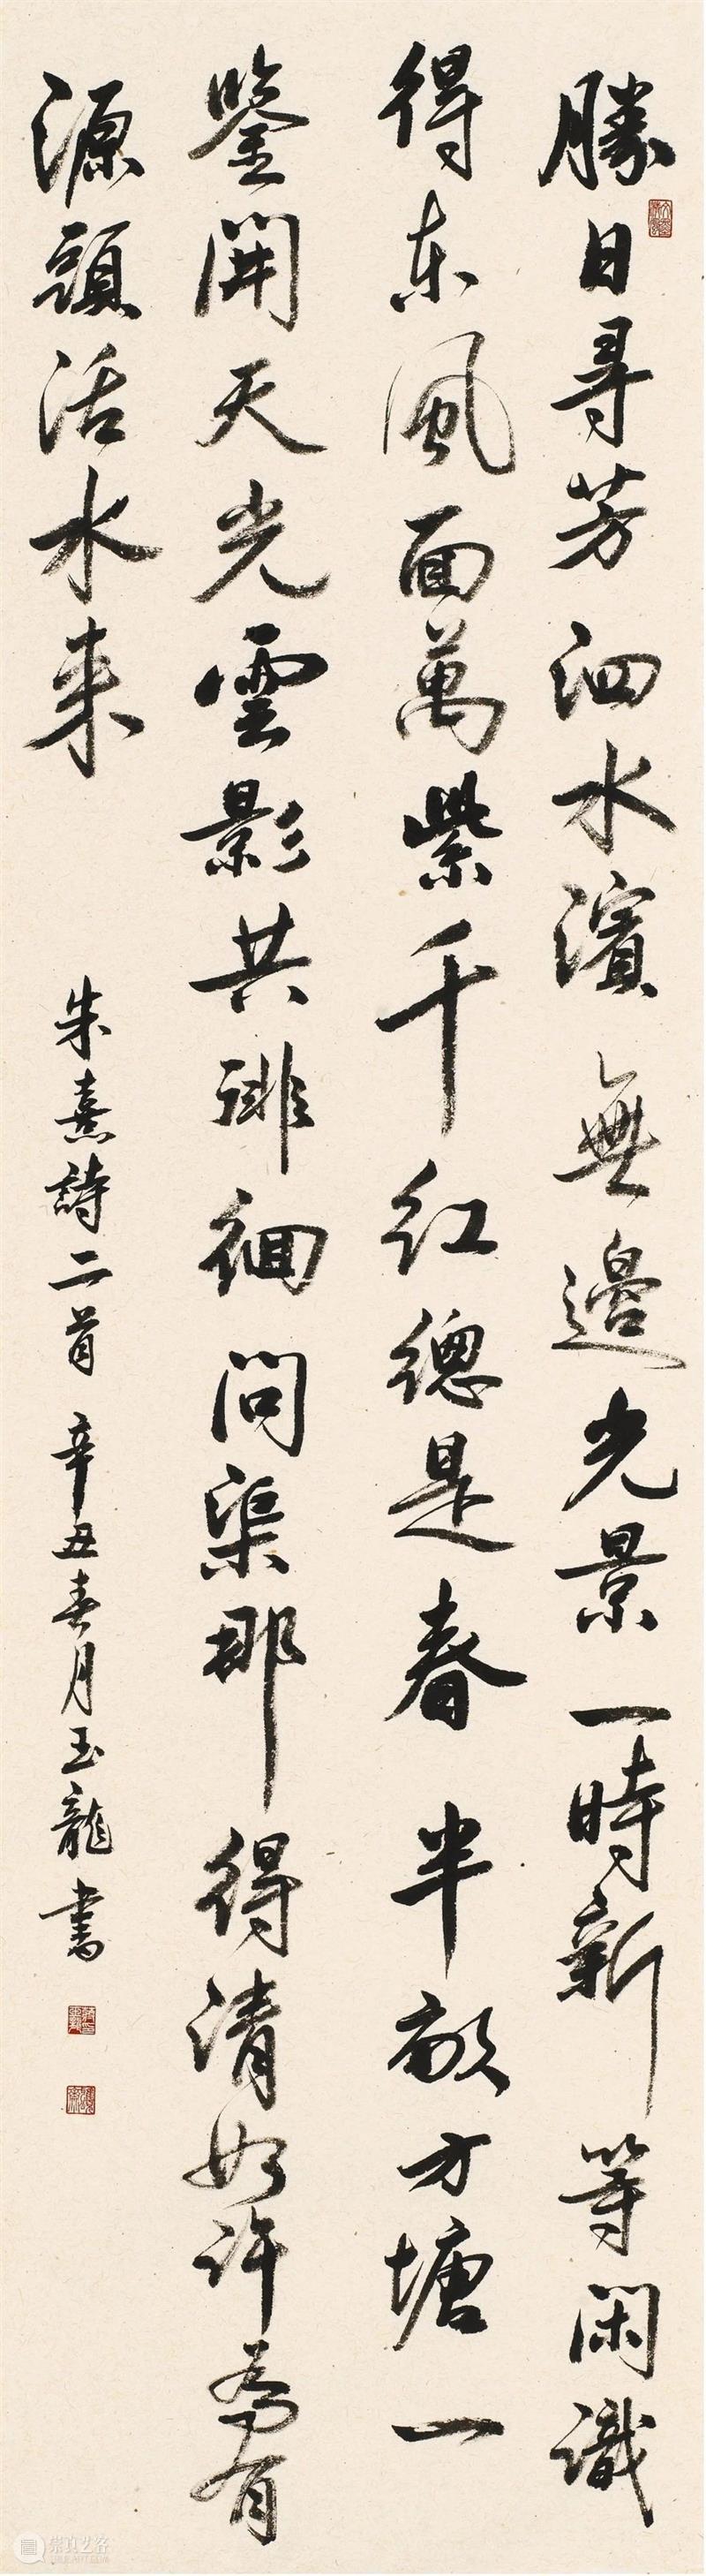 勝日尋芳泗水濱無邊光景一時新等閑識
得東風面萬紫千紅總是春半畝方塘一
鑒開天光雲影共徘徊問渠那得清如許為有
源頭活水来
朱熹詩二首辛丑春月玉龍書
崇真艺客